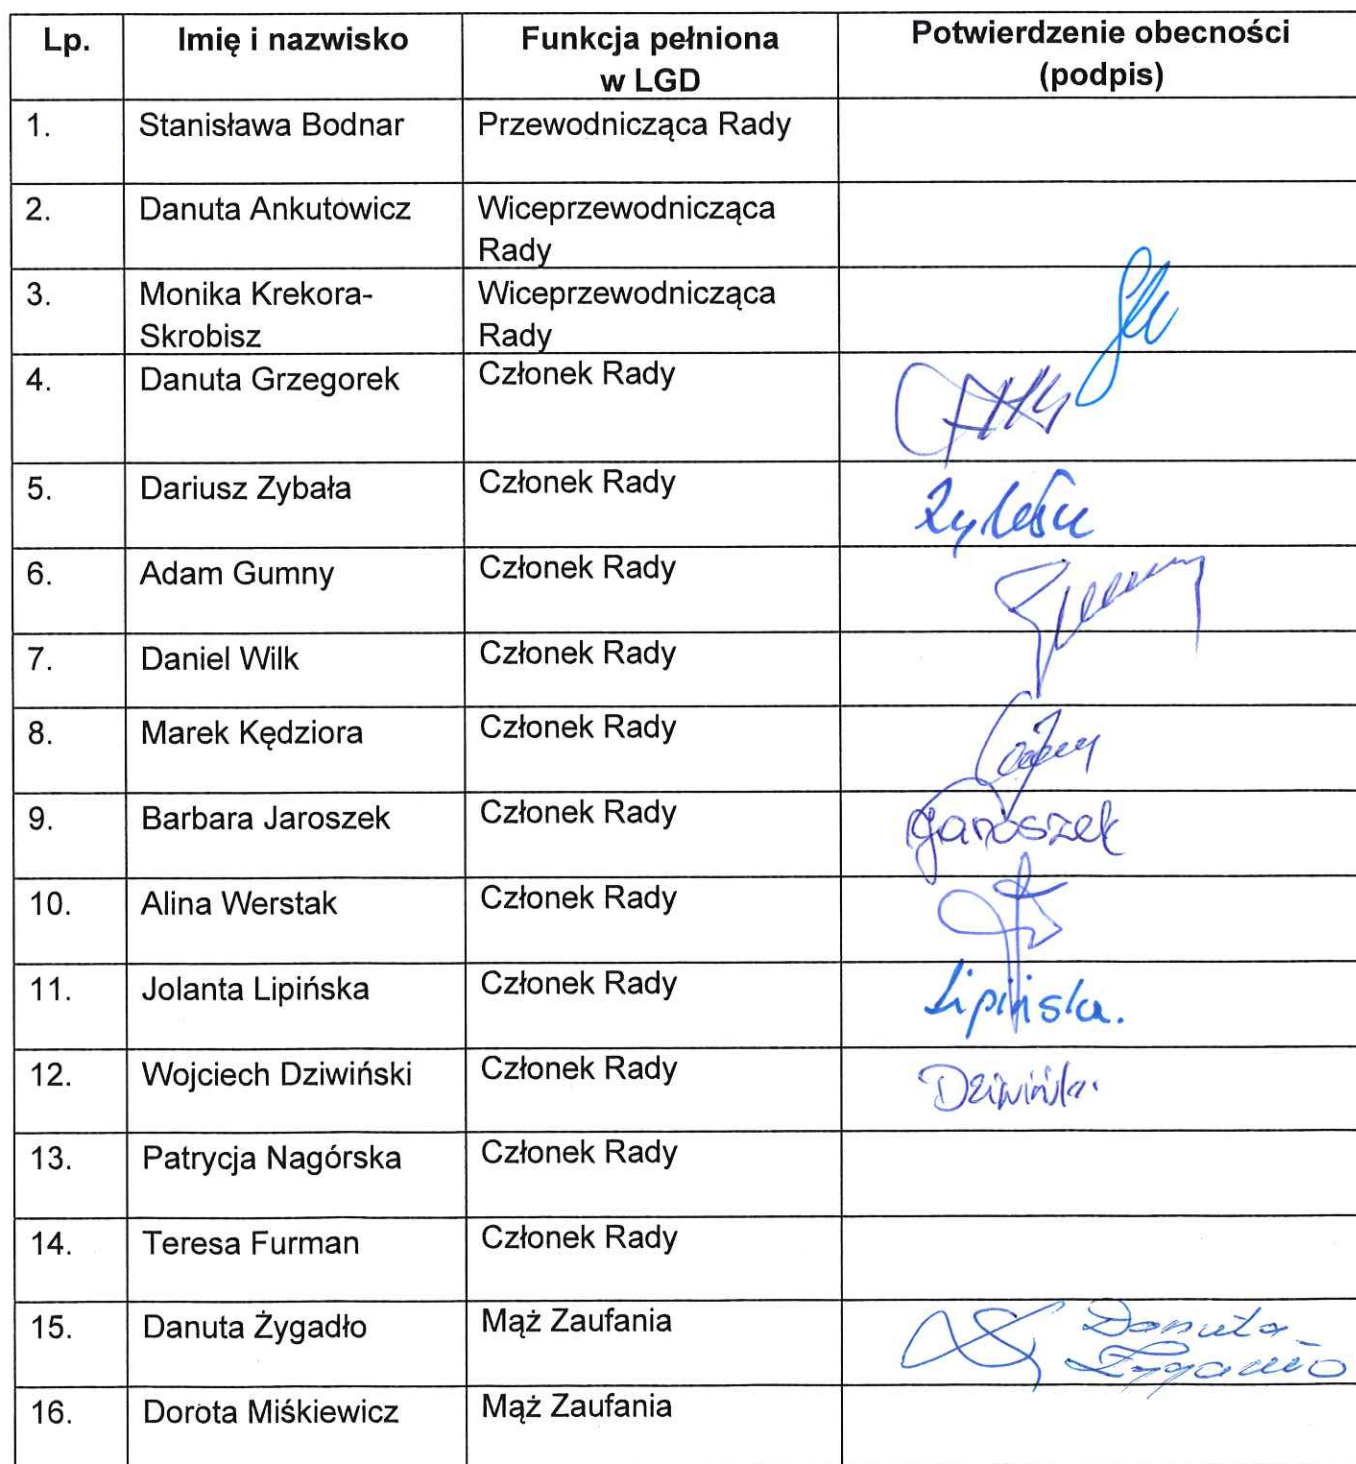 Lp. Imię i nazwisko Funkcja pełniona Potwierdzenie obecności
w LGD (podpis)
1. Stanisława Bodnar Przewodnicząca Rady
2. Danuta Ankutowicz Wiceprzewodnicząca
Rady
3. Monika Krekora- Wiceprzewodnicząca
Skrobisz Rady
4. Danuta Grzegorek Członek Rady
5. Dariusz Zybała Członek Rady
6. Adam Gumny Członek Rady
7. Daniel Wilk Członek Rady
8. Marek Kędziora Członek Rady
9. Barbara Jaroszek Członek Rady Jaroszek
10. Alina Werstak Członek Rady
11. Jolanta Lipińska Członek Rady Lipińska.
12. Wojciech Dziwiński Członek Rady
13. Patrycja Nagórska Członek Rady
14. Teresa Furman Członek Rady
15. Danuta Żygadło Mąż Zaufania Danuta
Żygadło
16. Dorota Miśkiewicz Mąż Zaufania